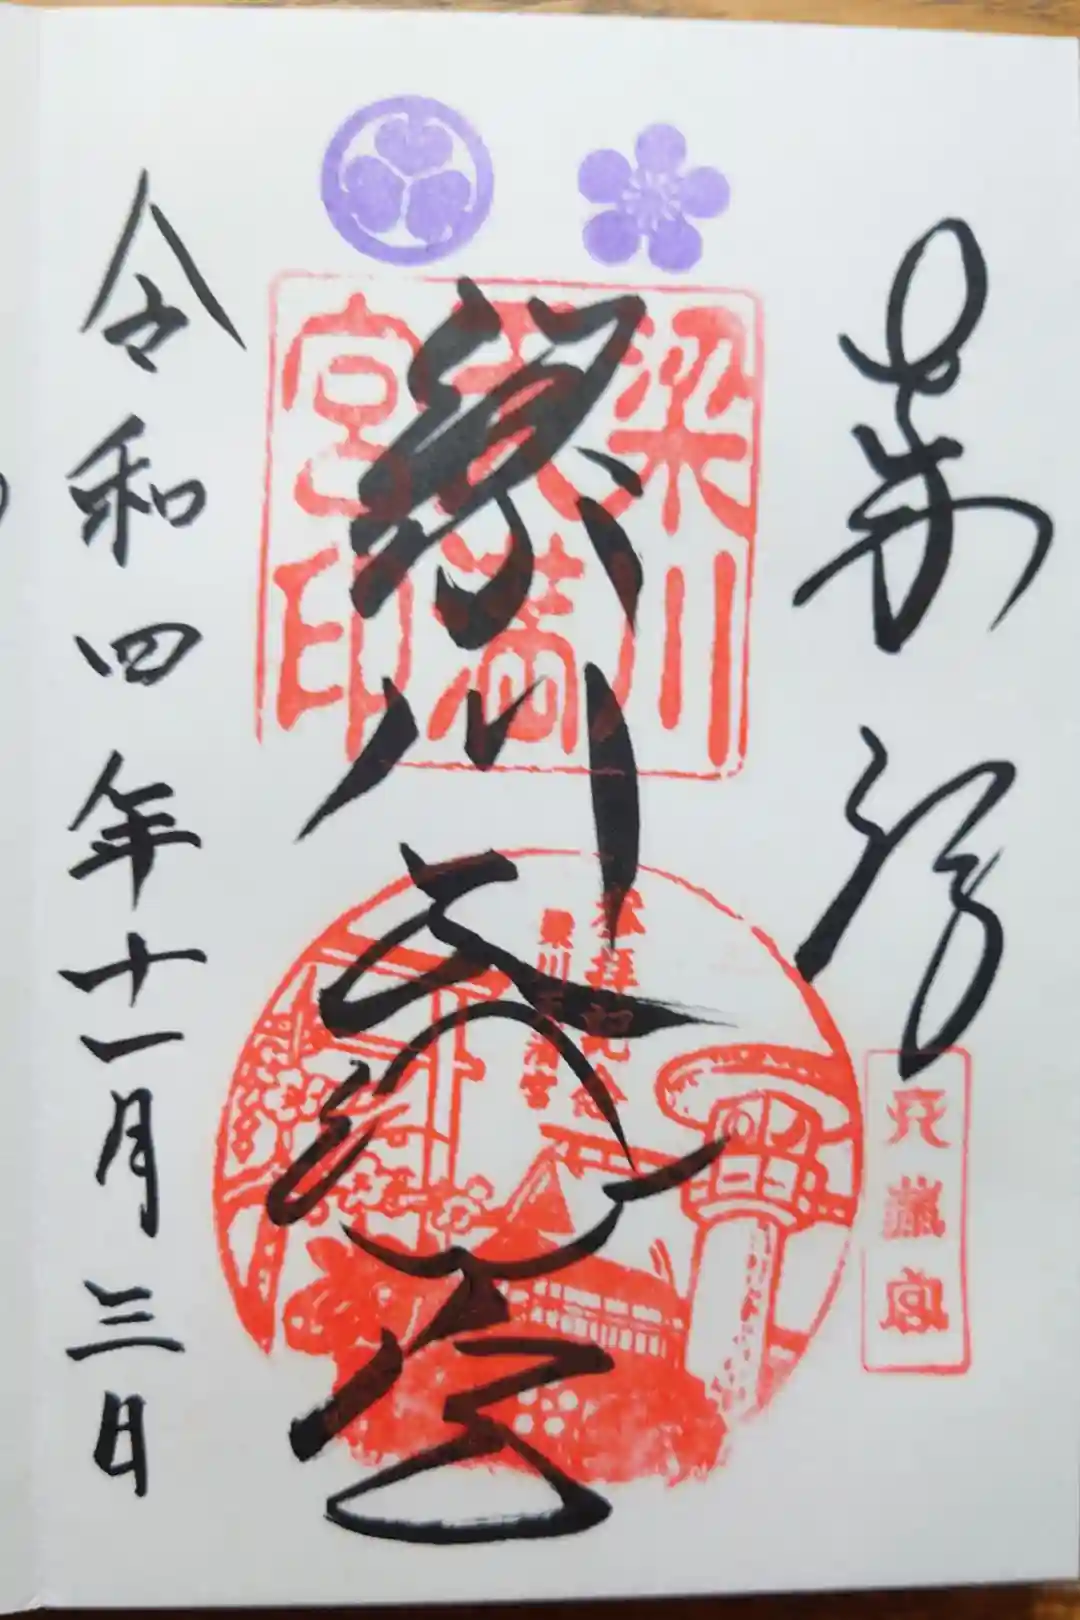 奉拝
梁川天満宮
梁川天満宮印
参拝記念
梁川天満宮
令和四年十一月三日